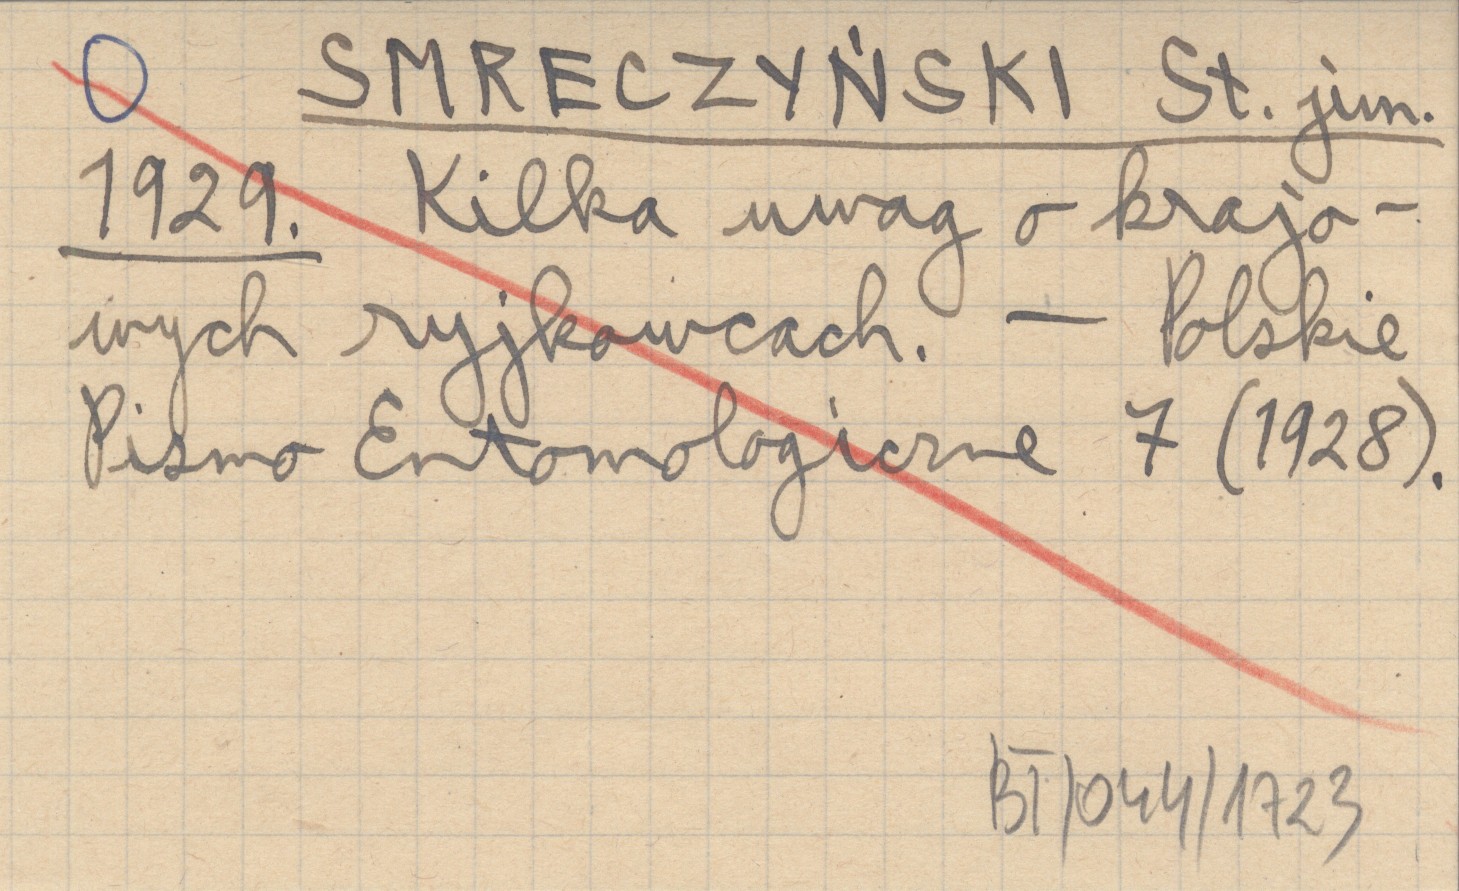 O SMRECZYŃSKI St. jun.
1929. Kilka uwag o krajo-
wych ryjkowcach. — Polskie
Pismo Entomologiczne 7 (1928).
BI/044/1723